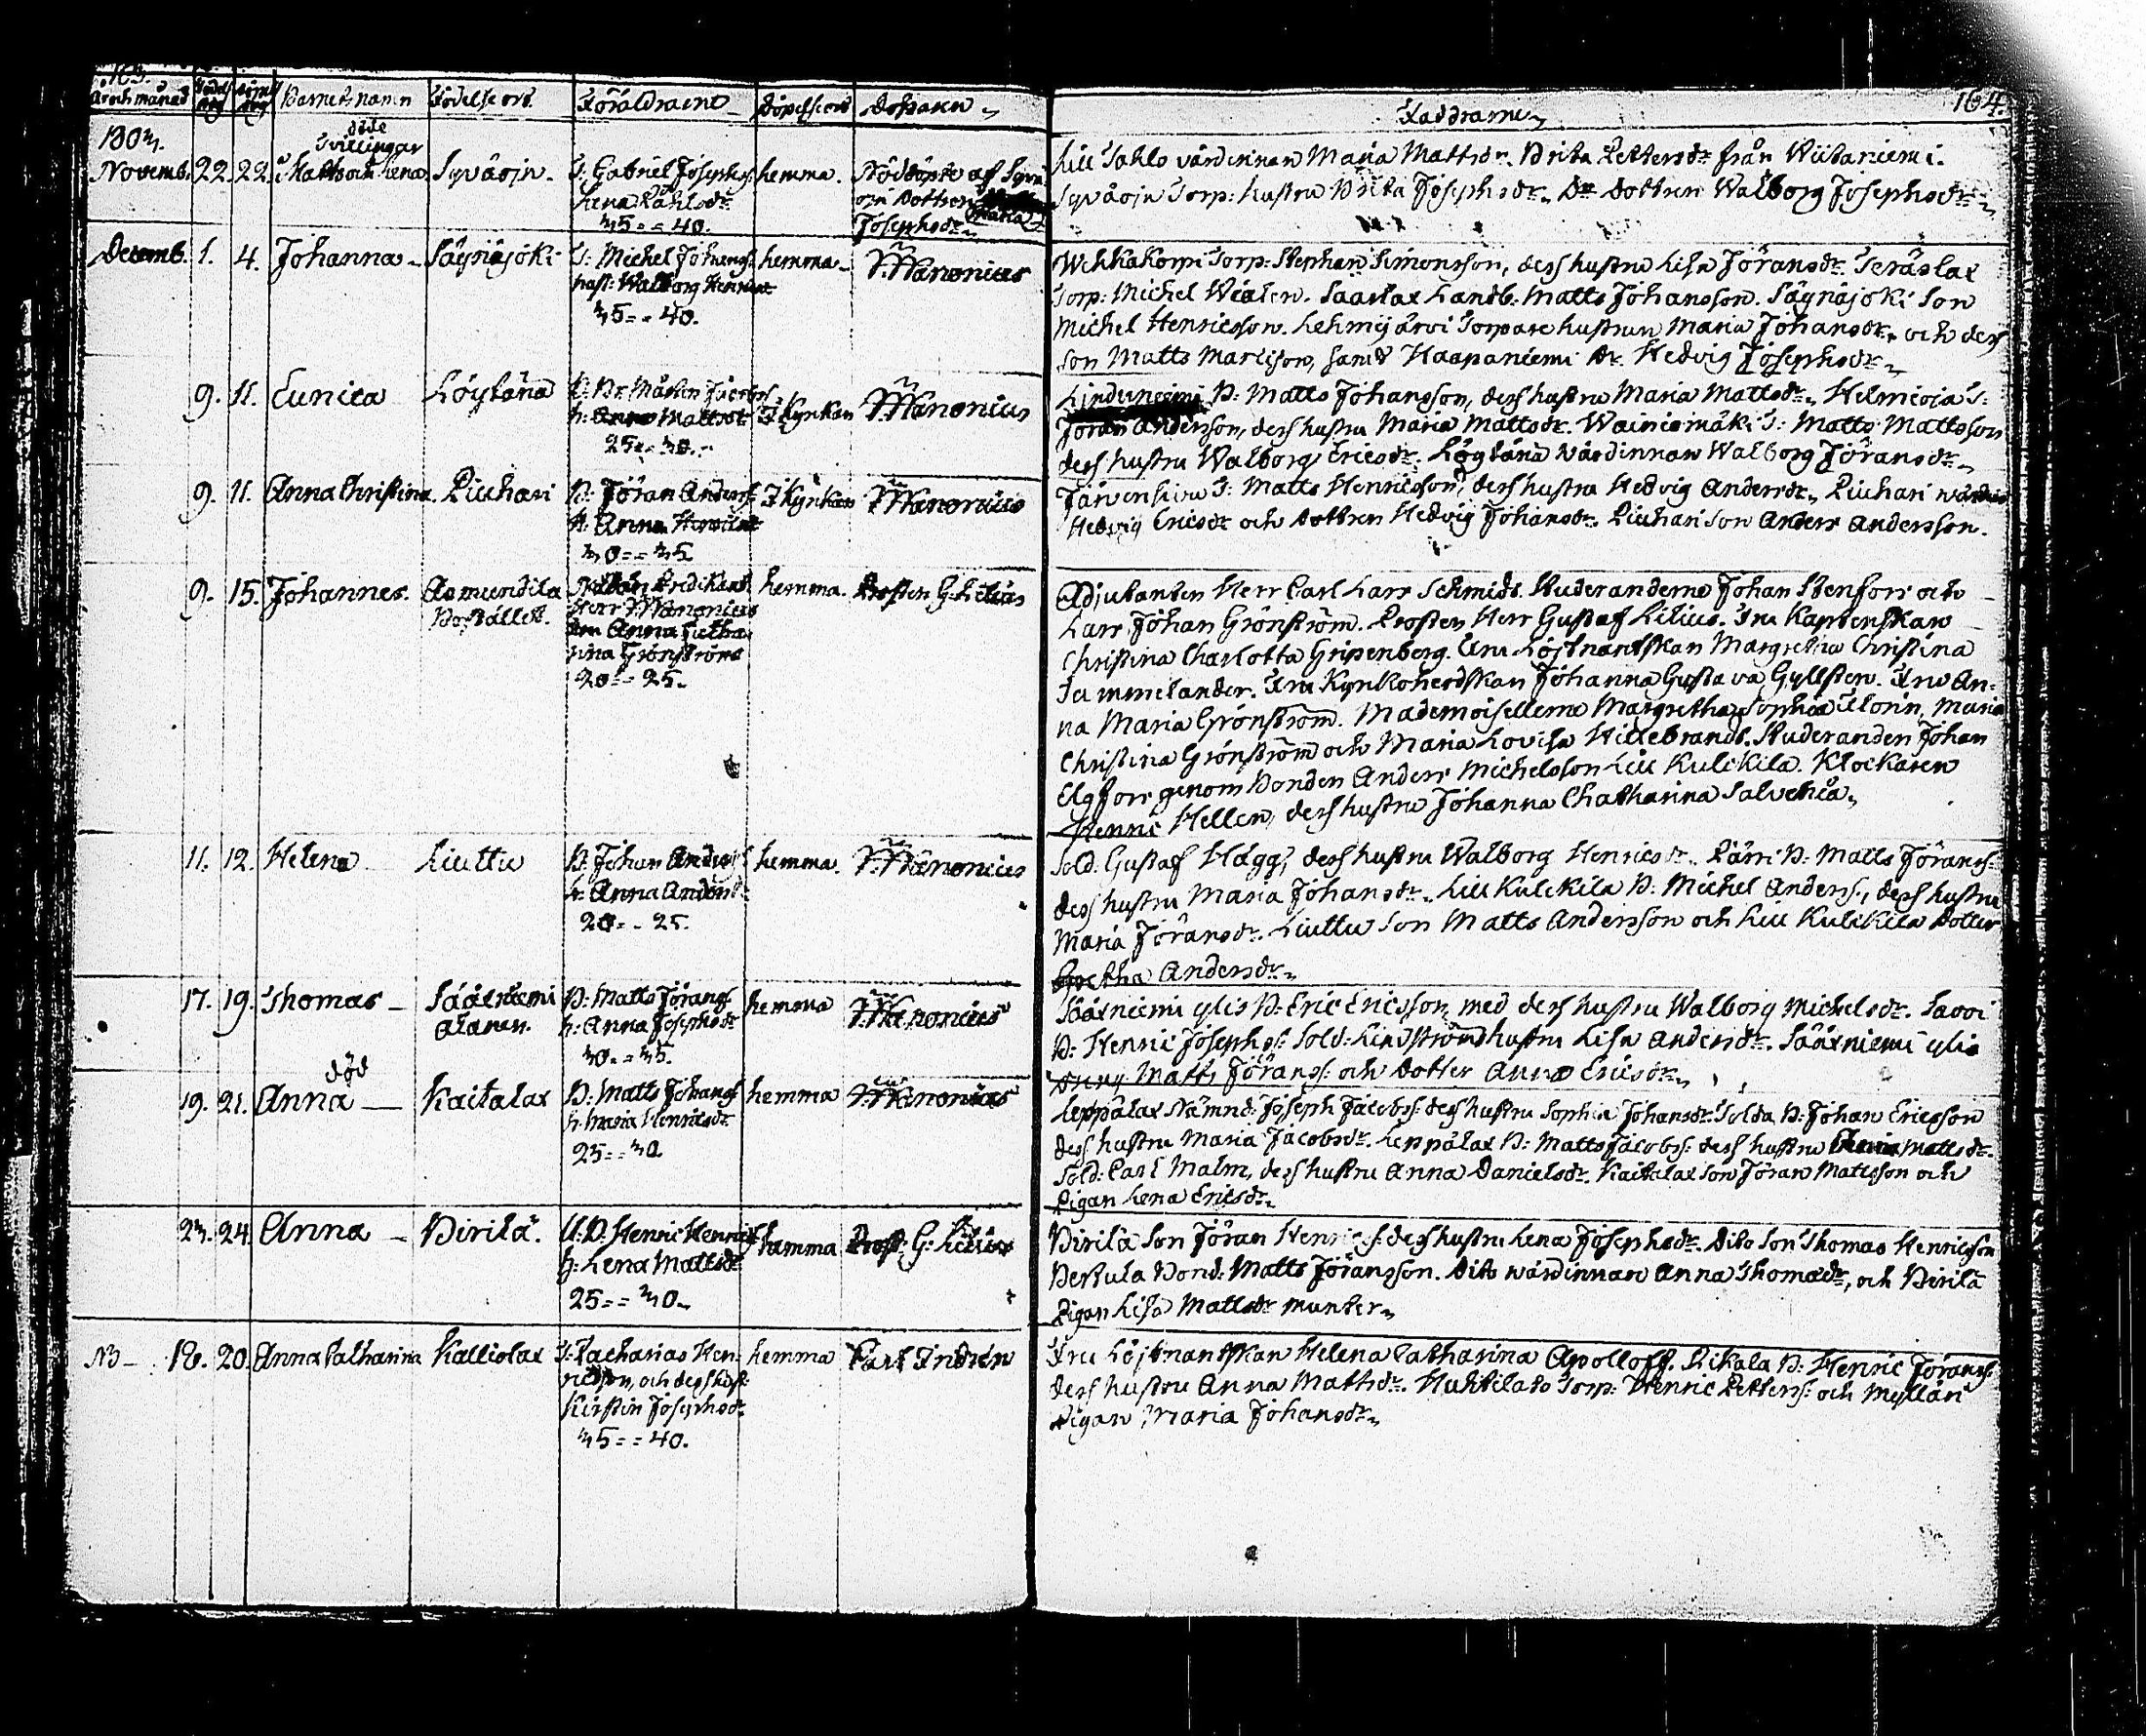 163.
År och månad
Födelse dag
Döpelse dag
Barnets namn
Födelse ort
Föräldrarne
Döpelse ort
Döparen
1803.
Novemb. 22. 22.
döde
Tvillingar
Matts och Lena
Syväoja.
T: Gabriel Josephs:
Lena Påhlsdr.
35 = = 40.
hemma.
Nöddöpte af Syvä
oja dottren
Maria
Josephsdr.
Decemb. 1. 4. Johanna
Säynäjoki
T: Michel Johans:
hust: Walborg Henricsdr
35 = = 40.
hemma
Wanonius
9. 11. Eunica
Löytänä
B: Br. Mårten Jacobs:
h: Anna Mattsdr
25 = = 30.
I Kyrkan
Wanonius
9. 11. Anna Christina
Piuhari
B: Jöran Anders:
h: Anna Henricsdr
30 = = 35
I Kyrkan
Wanonius
9. 15. Johannes.
Asmundila
Bostället.
Predikant
Herr Wanonius
Anna Catha
rina Grönström
20 = = 25.
hemma.
Prosten G: Lilius
11. 12. Helena
Liuttu
B: Johan Anders:
h: Anna Andersdr
20 = = 25.
hemma.
Wanonius
17. 19. Thomas
Säärniemi
alanen.
B: Matts Jörans:
h: Anna Josephsdr
30 = = 35.
hemma
Wanonius
död
19. 21. Anna
Kaitalax
B: Matts Johans:
h: Maria Henricsdr
25 = = 30
hemma
Wanonius
23. 24 Anna
Pirilä.
U: B: Henric Henrics:
h: Lena Mattsdr
25 = = 30
hemma
Prost: G: Lilius
NB 18. 20. Anna Catharina
Kalliolax
T: Zacharias Hen
ricsson, och dess hust:
Kirstin Josephsdr
35 = = 40.
hemma
Carl Indrén
164.
Faddrarne
Lill Sahlo värdinnan Maria Mattsdr. Brita Pettersdr från Wiitaniemi.
Syväoja Torp: hustru Brita Josephsdr. Do Dottren Walborg Josephsdr.
Wehkakorpi Torp: Stephan Simonsson, dess hustru Lisa Jöransdr. Teräslax
Torp: Michel Wiälen. Saarlax Landb: Matts Johansson. Säynäjoki Son
Michel Henricsson. Lehmijärvi Torpare hustrun Maria Johansdr. och dess
son Matts Martison, samt Haapaniemi Dr. Hedvig Josephsdr.
Linduniemi B: Matts Johansson, dess hustru Maria Mattsdr. Helmioja T:
Jöran Andersson, dess hustru Maria Mattsdr. Wainiomäki T: Matts Mattsson
dess hustru Walborg Ericsdr. Löytänä värdinnan Walborg Jöransdr.
T: Matts Henricsson, dess hustru Hedvig Andersdr. Piuhari
Hedvig Ericsdr och dottren Hedvig Johansdr. Piuhari son Anders Andersson.
Adjutanten Herr Carl Lars Schmidt. Studeranderne Johan Stenfors och
Lars Johan Grönström. Prosten Herr Gustaf Lilius. Fru Kaptenskan
Christina Charlotta Gripenberg. Fru Löjtnantskan Margretha Christina
Tammelander. Fru Kyrkoherdskan Johanna Gustava Gyllsten. Fru An
na Maria Grönström. Mademoisellerne Margretha Sophia Florin, Maria
Christina Grönström och Maria Lovisa Hillebrandt. Studeranden Johan
Elgfors genom Bonden Anders Michelsson Lill Kulckila. Klockaren
Henric Hellen, dess hustru Johanna Chatharina Salvenia.
Sold. Gustaf Hägg, dess hustru Walborg Henricsdr. Pärri B: Matts Jörans:
dess hustru Maria Johansdr. Lill Kulckila B: Michel Anders:, dess hustru
Maria Jöransdr. Liuttu Son Matts Andersson och Lill Kulckila Dotter
Gretha Andersdr.
Säärniemi ylis B: Eric Ericsson, med dess hustru Walborg Michelsdr. Savoi
B: Henric Josephs: Sold: Lindströms hustru Lisa Andersdr. Säärniemi ylis
Matts Jörans: och dotter Anna Ericsdr.
Leppälax Nämnd: Joseph Jacobs: dess hustru Sophia Johansdr. Solda B: Johan Ericsson
dess hustru Maria Jacobsdr. Leppälax B: Matts Jacobs: dess hustru Mattsdr.
Sold: Carl Malm, dess hustru Anna Danielsdr. Kaitalax son Jöran Mattsson och
Pigan Lena Ericsdr.
Pirilä Son Jöran Henrics: dess hustru Lena Josephsdr. Dito Son Thomas Henricsson
Perkula Bond: Matts Jöransson. Dito värdinnan Anna Thomædr, och Pirilä
Pigan Lisa Mattsdr Munter.
Fru Löjtnantskan Helena Catharina Apolloff. Likala B: Henric Jörans:
dess hustru Anna Mattsdr. Huhtilato Torp: Henric Petters: och Myllän
Pigan Maria Johansdr.